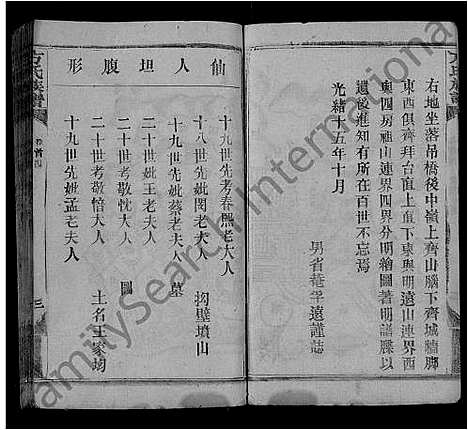 右地坐落吊橋後中嶺上齊山腦下齊城牆脚
東西俱齊拜台直上直下東與明遠山連界西
與四房祖山連界四界分明繪圖著明譜牒以
遺後進知有所在百世不忘焉
光緒十五年十月
男省菴孚遠謹誌
仙人坦腹形
十九世先考春熙老大人
十八世先妣閔老夫人
十九世先妣蔡老夫人
二十世妣王老夫人
二十世考敬忱大人
二十世考敬愔大人
十九世先妣孟老夫人
墓
圖
挏壁墳山
土名王家均
方氏族譜
卷首四
三
方氏族譜
FamilySearch International